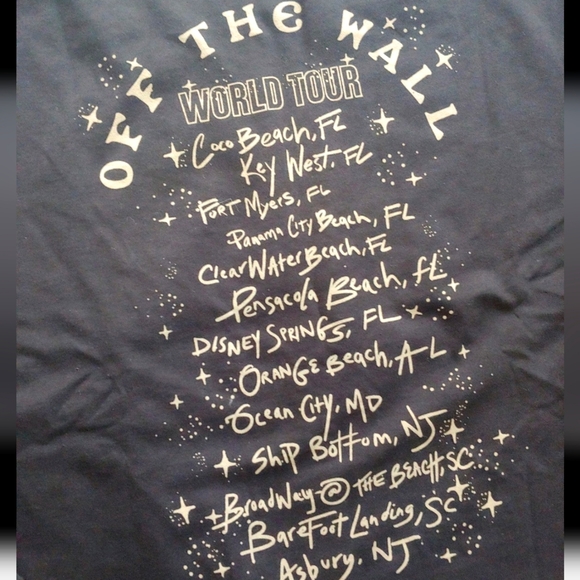 OFF THE WALL
WORLD TOUR
Coco Beach, FL
Key West, FL
FORT Myers, FL
Panama City Beach, FL
ClearWAter Beach, FL
Pensacola Beach, fL
DISNEY SPRINGS, FL
ORANGE Beach, AL
Ocean City, MD
SHIP Bottom, NJ
BroadWay @ THE BEACH, SC
BareFoot Landing, SC
Asbury, NJ